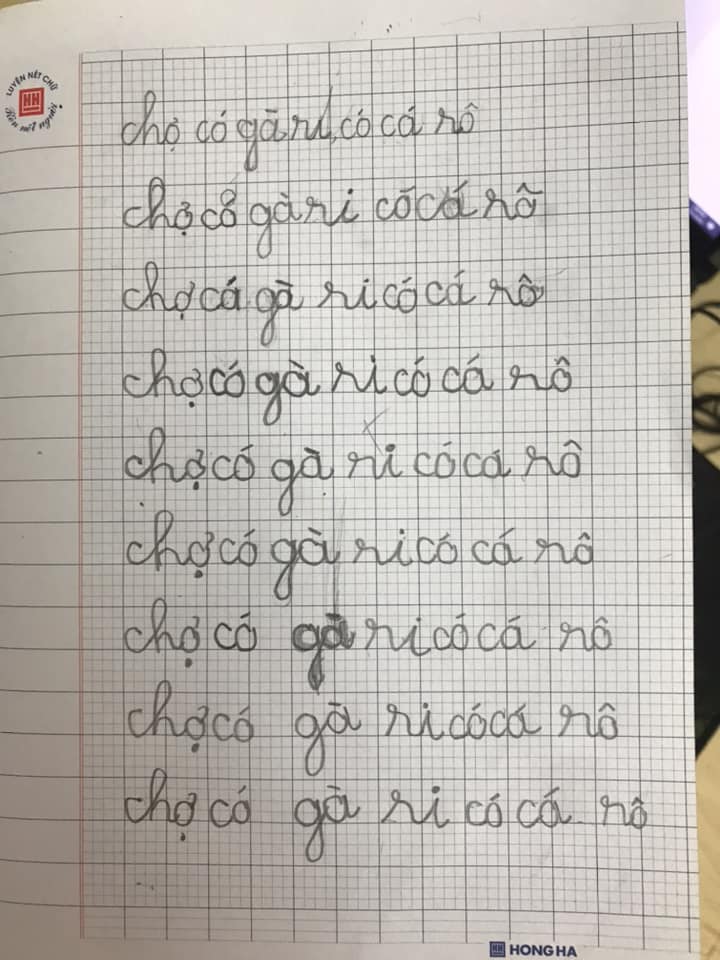 LUYỆN NÉT CHỮ
Rèn nết người
HH
chợ có gà ri, có cá rô
chợ cố gà ri có cá rô
chợ cá gà ri có cá rô
chợ có gà ri có cá rô
chợ có gà ri có ca rô
chợ có gà ri có cá rô
chợ có gà ri có cá rô
chợ có gà ri có cá rô
chợ có gà ri có cá rô
HH HONG HA